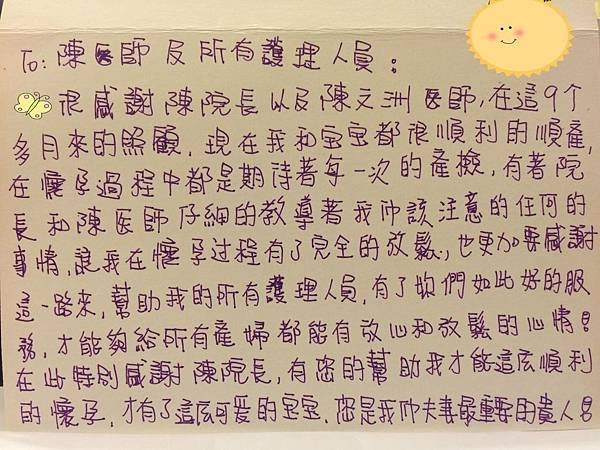 To: 陳医師及所有護理人員:
很感謝陳院長以及陳文洲医師,在這9个
多月來的照顧,現在我和宝宝都很順利的順產,
在懷孕過程中都是期待著每一次的產檢,有著院
長和陳医師仔細的教導著我們該注意的任何的
事情,讓我在懷孕过程有了完全的放鬆,也更加要感謝
這一路來,幫助我的所有護理人員,有了妳們如此好的服
務,才能夠給所有產婦都能有放心和放鬆的心情!
在此特別感謝陳院長,有您的幫助我才能這広順利
的懷孕,才有了這広可爱的宝宝,您是我們夫妻最重要的貴人!